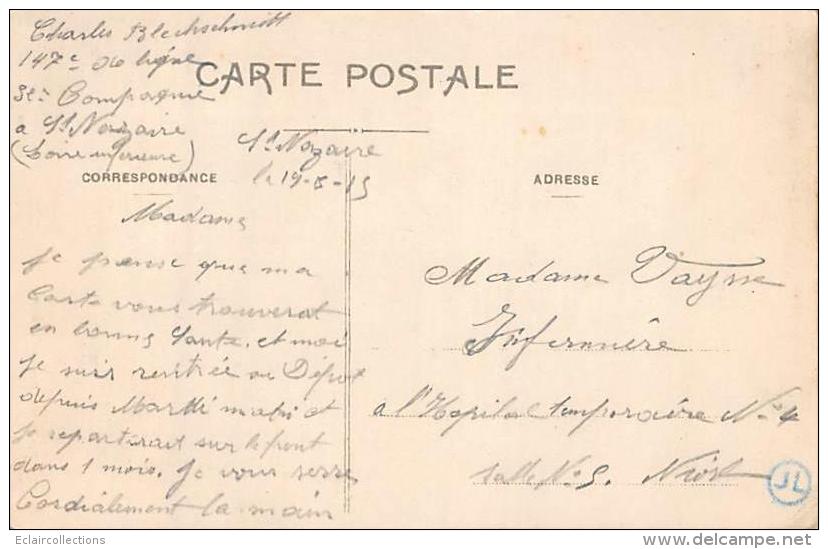 Charles Blechschmitt
147e de ligne
31e Compagnie
a St Nazaire
(Loire inferieure)
CARTE POSTALE
St Nazaire
le 19-8-15
CORRESPONDANCE
ADRESSE
Madame
Je pense que ma
Carte vous trouverat
en bonne Sante, et moi
Je suis rentrée au Dépot
depuis Mardi matin et
Je repartirait sur le front
dans 1 mois. Je vous serre
Cordialement la main
Madame Vaysse
Infermière
a l'Hopital temporaire No 4
Salle No 5. Niort
JL
Eclaircollections
www.delcampe.net